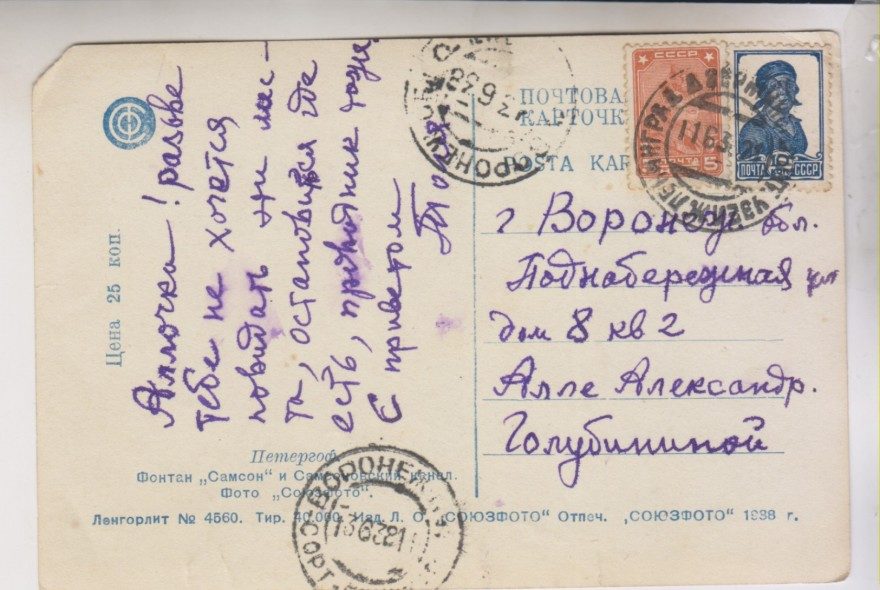 Аллочка! разве
тебе не хочется
повидать эти мес-
та, остановится где
есть, проводник тоже.
С приветом
Цена 25 коп.
Петергоф
Фонтан „Самсон“ и Самсоновский канал.
Фото „Союзфото“.
Ленгорлит № 4560. Тир. 40.000 Изд. Л. О. „СОЮЗФОТО“ Отпеч. „СОЮЗФОТО“ 1938 г.
ПОЧТОВА
КАРТОЧК
POŜTA KAR
СССР
ПОЧТА 5
ПОЧТА СССР
ЛЕНИНГРАД
11638
г Воронеж обл.
Поднабережная ул
дом 8 кв 2
Алле Александр.
Голубининой
ВОРОНЕЖ
ВОРОНЕЖ